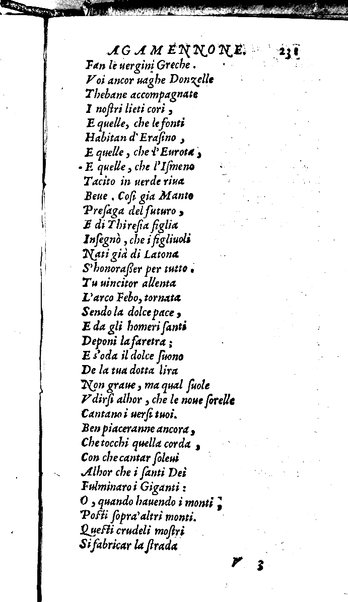 AGAMENNONE. 231
Fan le uergini Greche.
Voi ancor uaghe Donzelle
Thebane accompagnate
I noſtri lieti cori,
E quelle, che le fonti
Habitan d'Eraſino,
E quelle, che l'Eurota,
E quelle, che l'Iſmeno
Tacito in uerde riua
Beue. Coſi gia Manto
Preſaga del futuro,
E di Thireſia figlia
Inſegnò, che i figliuoli
Nati già di Latona
S'honoraſſer per tutto.
Tu uincitor allenta
L'arco Febo, tornata
Sendo la dolce pace,
E da gli homeri ſanti
Deponi la faretra;
E s'oda il dolce ſuono
De la tua dotta lira
Non graue, ma qual ſuole
Vdirſi alhor, che le noue ſorelle
Cantano i uerſi tuoi.
Ben piaceranne ancora,
Che tocchi quella corda,
Con che cantar ſoleui
Alhor che i ſanti Dei
Fulminaro i Giganti:
O, quando hauendo i monti,
Poſti ſopra'altri monti.
Queſti crudeli moſtri
Si fabricar la ſtrada
V 3